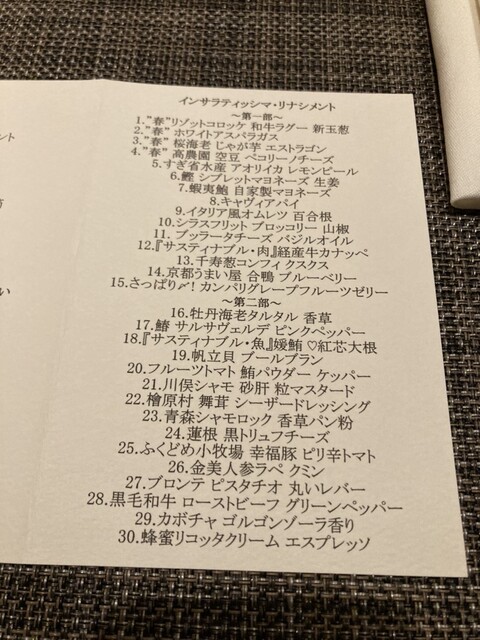 インサラティッシマ・リナシメント
～第一部～
1.”春”リゾットコロッケ 和牛ラグー 新玉葱
2.”春” ホワイトアスパラガス
3.”春” 桜海老 じゃが芋 エストラゴン
4.”春” 高農園 空豆 ペコリーノチーズ
5.すぎ省水産 アオリイカ レモンピール
6.鰹 シブレットマヨネーズ 生姜
7.蝦夷鮑 自家製マヨネーズ
8.キャヴィアパイ
9.イタリア風オムレツ 百合根
10.シラスフリット ブロッコリー 山椒
11. ブッラータチーズ バジルオイル
12.『サスティナブル・肉』経産牛カナッペ
13.千寿葱コンフィ クスクス
14.京都うまい屋 合鴨 ブルーベリー
15.さっぱり〆! カンパリグレープフルーツゼリー
～第二部～
16.牡丹海老タルタル 香草
17.鰆 サルサヴェルデ ピンクペッパー
18.『サスティナブル・魚』媛鮪 ♡紅芯大根
19.帆立貝 ブールブラン
20.フルーツトマト 鮪パウダー ケッパー
21.川俣シャモ 砂肝 粒マスタード
22.檜原村 舞茸 シーザードレッシング
23.青森シャモロック 香草パン粉
24.蓮根 黒トリュフチーズ
25.ふくどめ小牧場 幸福豚 ピリ辛トマト
26.金美人参ラペ クミン
27.ブロンテ ピスタチオ 丸いレバー
28.黒毛和牛 ローストビーフ グリーンペッパー
29.カボチャ ゴルゴンゾーラ香り
30.蜂蜜リコッタクリーム エスプレッソ